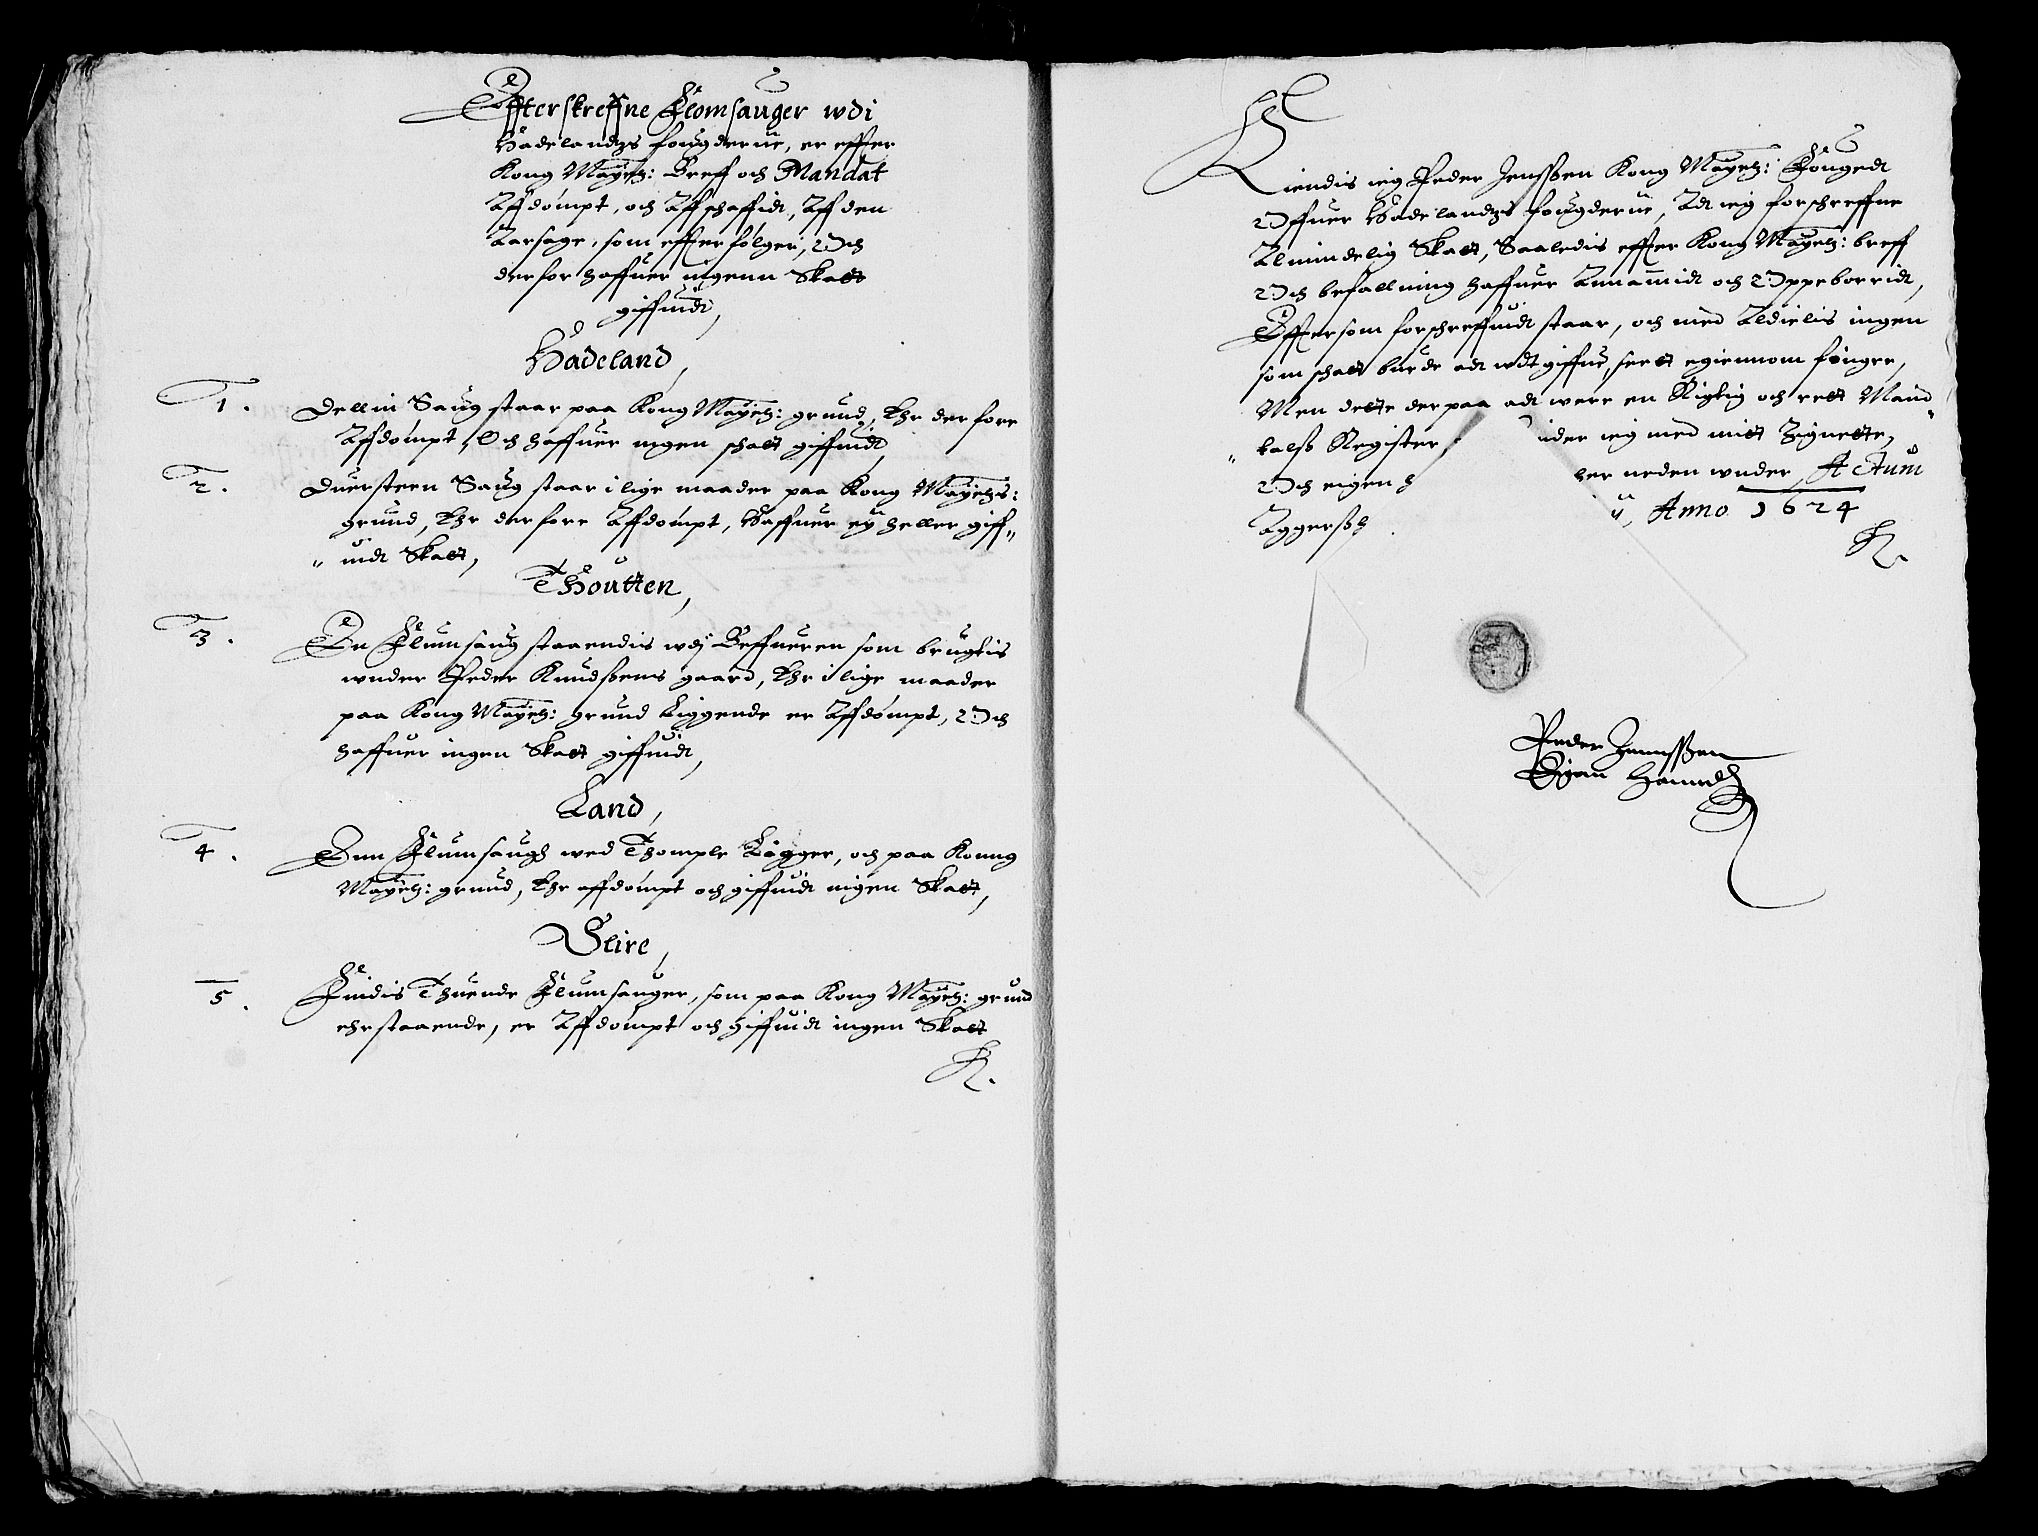 Effterskreffne Flomsauger wdi
Hadelandtzs fougderiie, er effter
Kong Mayetz: Breff och Mandat
Affdömpt, och Affschaffidt, Aff den
Aarsage, som effter fölger, Och
derfor haffuer ingenn Skatt
giffuidt,
Hadeland,
1. Dellin Saug staar paa Kong Mayetz: grund, Ehr derfore
Affdömpt, Och haffuer ingen schatt giffuidt,
2. Duersteen Saug staar i lige maader paa Kong Mayetzs:
grund, Ehr derfore Affdömpt, Haffuer ey heller giff„
„ uidt Skatt,
Thoutten,
3. En Flumsaug staaendis wdj Beffueren som brugtis
wnder Peder Knudsßens gaard, Ehr i lige maader
paa Kong Mayetz: grund Liggende er Affdömpt, Och
haffuer ingen Skatt giffuidt,
Land,
4. Enn Flumsaugh wed Thomple Ligger, och paa Konng
Mayetz: grund, Ehr affdömpt och giffuidt ingen Skatt,
Slire,
5. Findis Thuende Flumsauger, som paa Kong Mayetz: grund
ehr staaende, er Affdömpt och giffuidt ingen Skatt
Kiendis ieg Peder Jensßen Kong Mayetz: Fougedt
Offuer Hadelandtzs fougderiie, At ieg forschreffne
Almindelig Skatt, Saaledis effter Kong Mayetz: breff
Och befallning haffuer Annammidt och Oppeborridt,
Effter som forschreffuidt staar, och med Aldielis ingen
som schatt burde att wdtgiffue, seett egiennom fingre,
Men dette derpaa att were en Rigtig och rett Mand„
„ talß Register
uder ieg med mitt Zignette,
Och eigen h
her neden wnder, Actum
Aggersßh
Anno 1624
Peder Jennsßen
Egen Hanndt